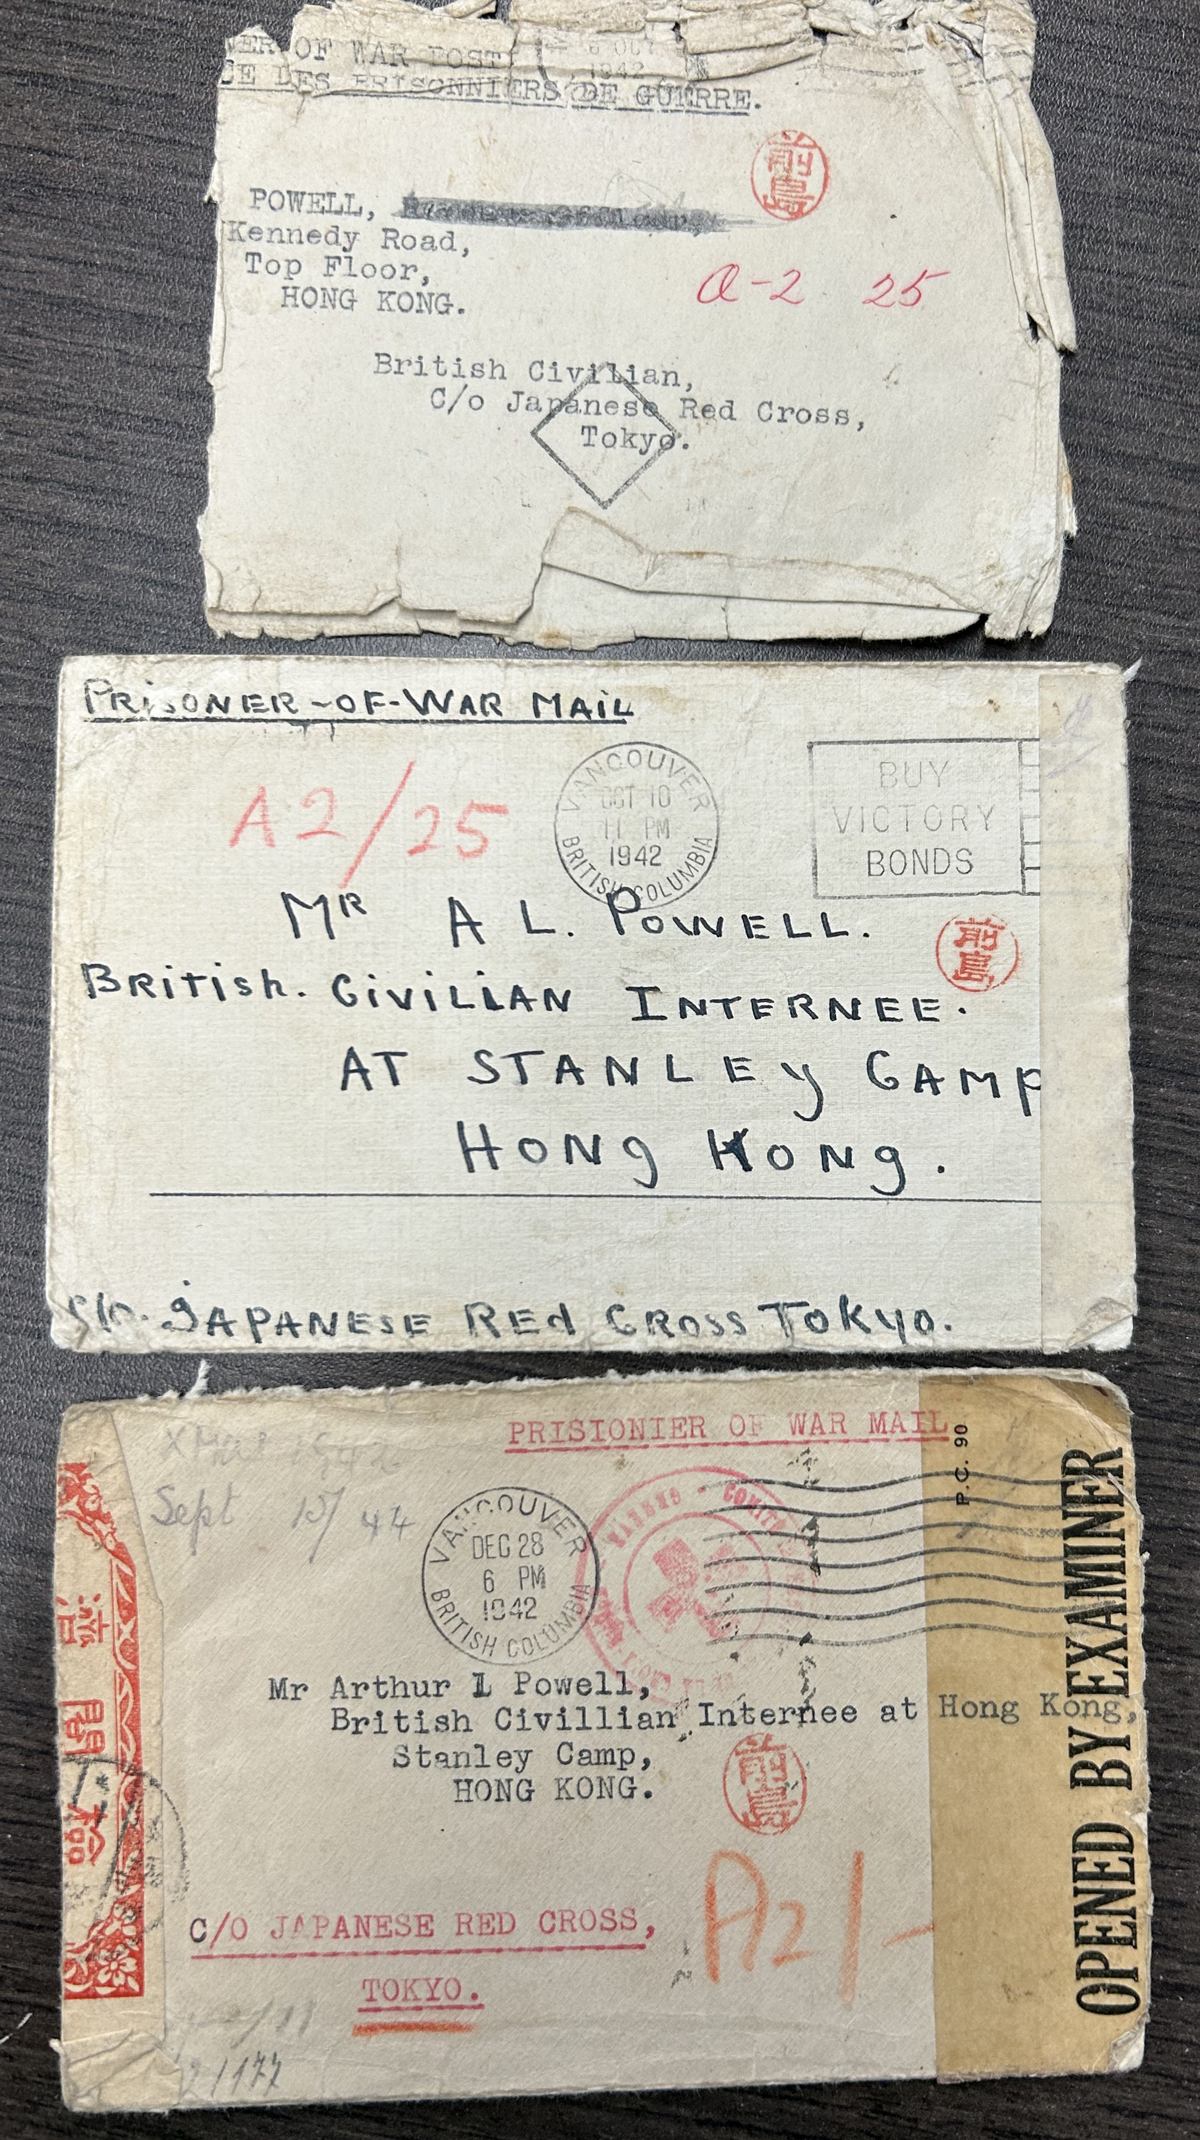 OF WAR POST
CE DES PRISONNIERS DE GUERRE.
OCT
1942
前島
POWELL,
Kennedy Road,
Top Floor,
HONG KONG.
A-2 25
British Civilian,
C/o Japanese Red Cross,
Tokyo.
PRISONER-OF-WAR MAIL
A2/25
VANCOUVER
OCT 10
11 PM
1942
BRITISH COLUMBIA
BUY
VICTORY
BONDS
MR A L. POWELL.
前島
British. CIVILIAN INTERNEE.
AT STANLEY CAMP
HONG KONG.
C/O. JAPANESE RED CROSS TOKYO.
PRISIONIER OF WAR MAIL
P.C. 90
OPENED BY EXAMINER
Sept 15/44
VANCOUVER
DEC 28
6 PM
1942
BRITISH COLUMBIA
Mr Arthur L Powell,
British Civillian Internee at Hong Kong,
Stanley Camp,
HONG KONG.
前島
A21-
C/O JAPANESE RED CROSS,
TOKYO.
2/177